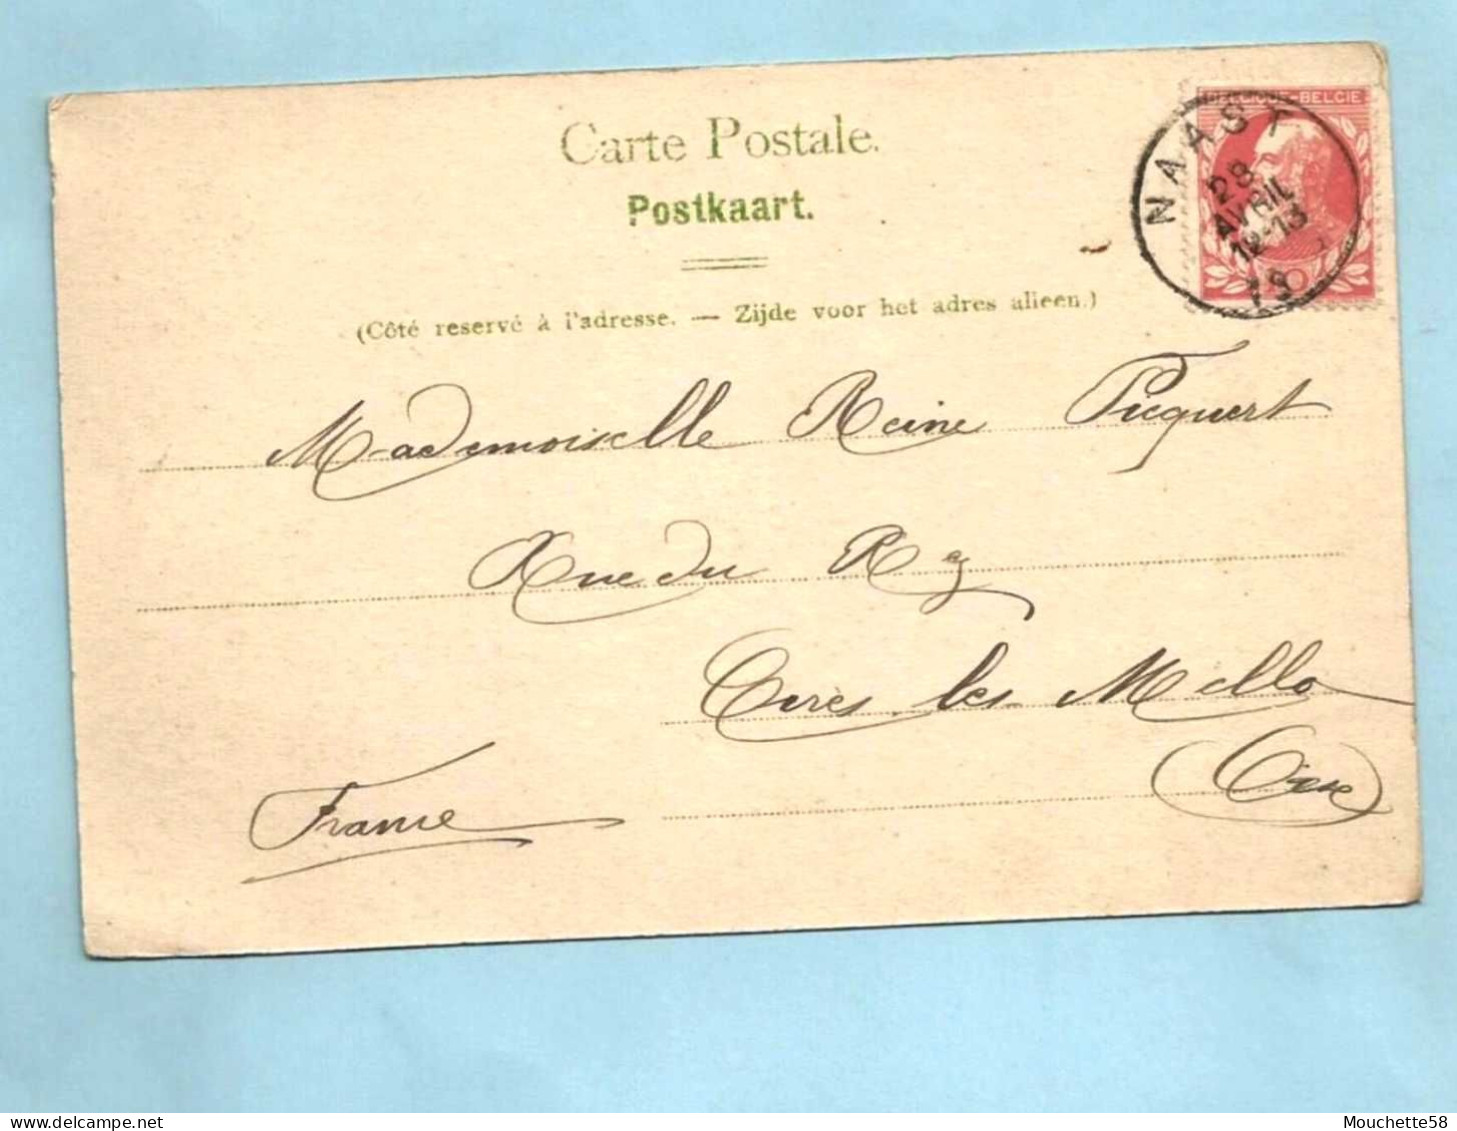 Carte Postale.
Postkaart.
(Côté reservé à l'adresse. — Zijde voor het adres alleen.)
BELGIQUE-BELGIE
NAAST
28
AVRIL
12-13
10
Mademoiselle Reine Picquert
Rue du Rez
Cires les Mello
(Oise)
France
Mouchette58